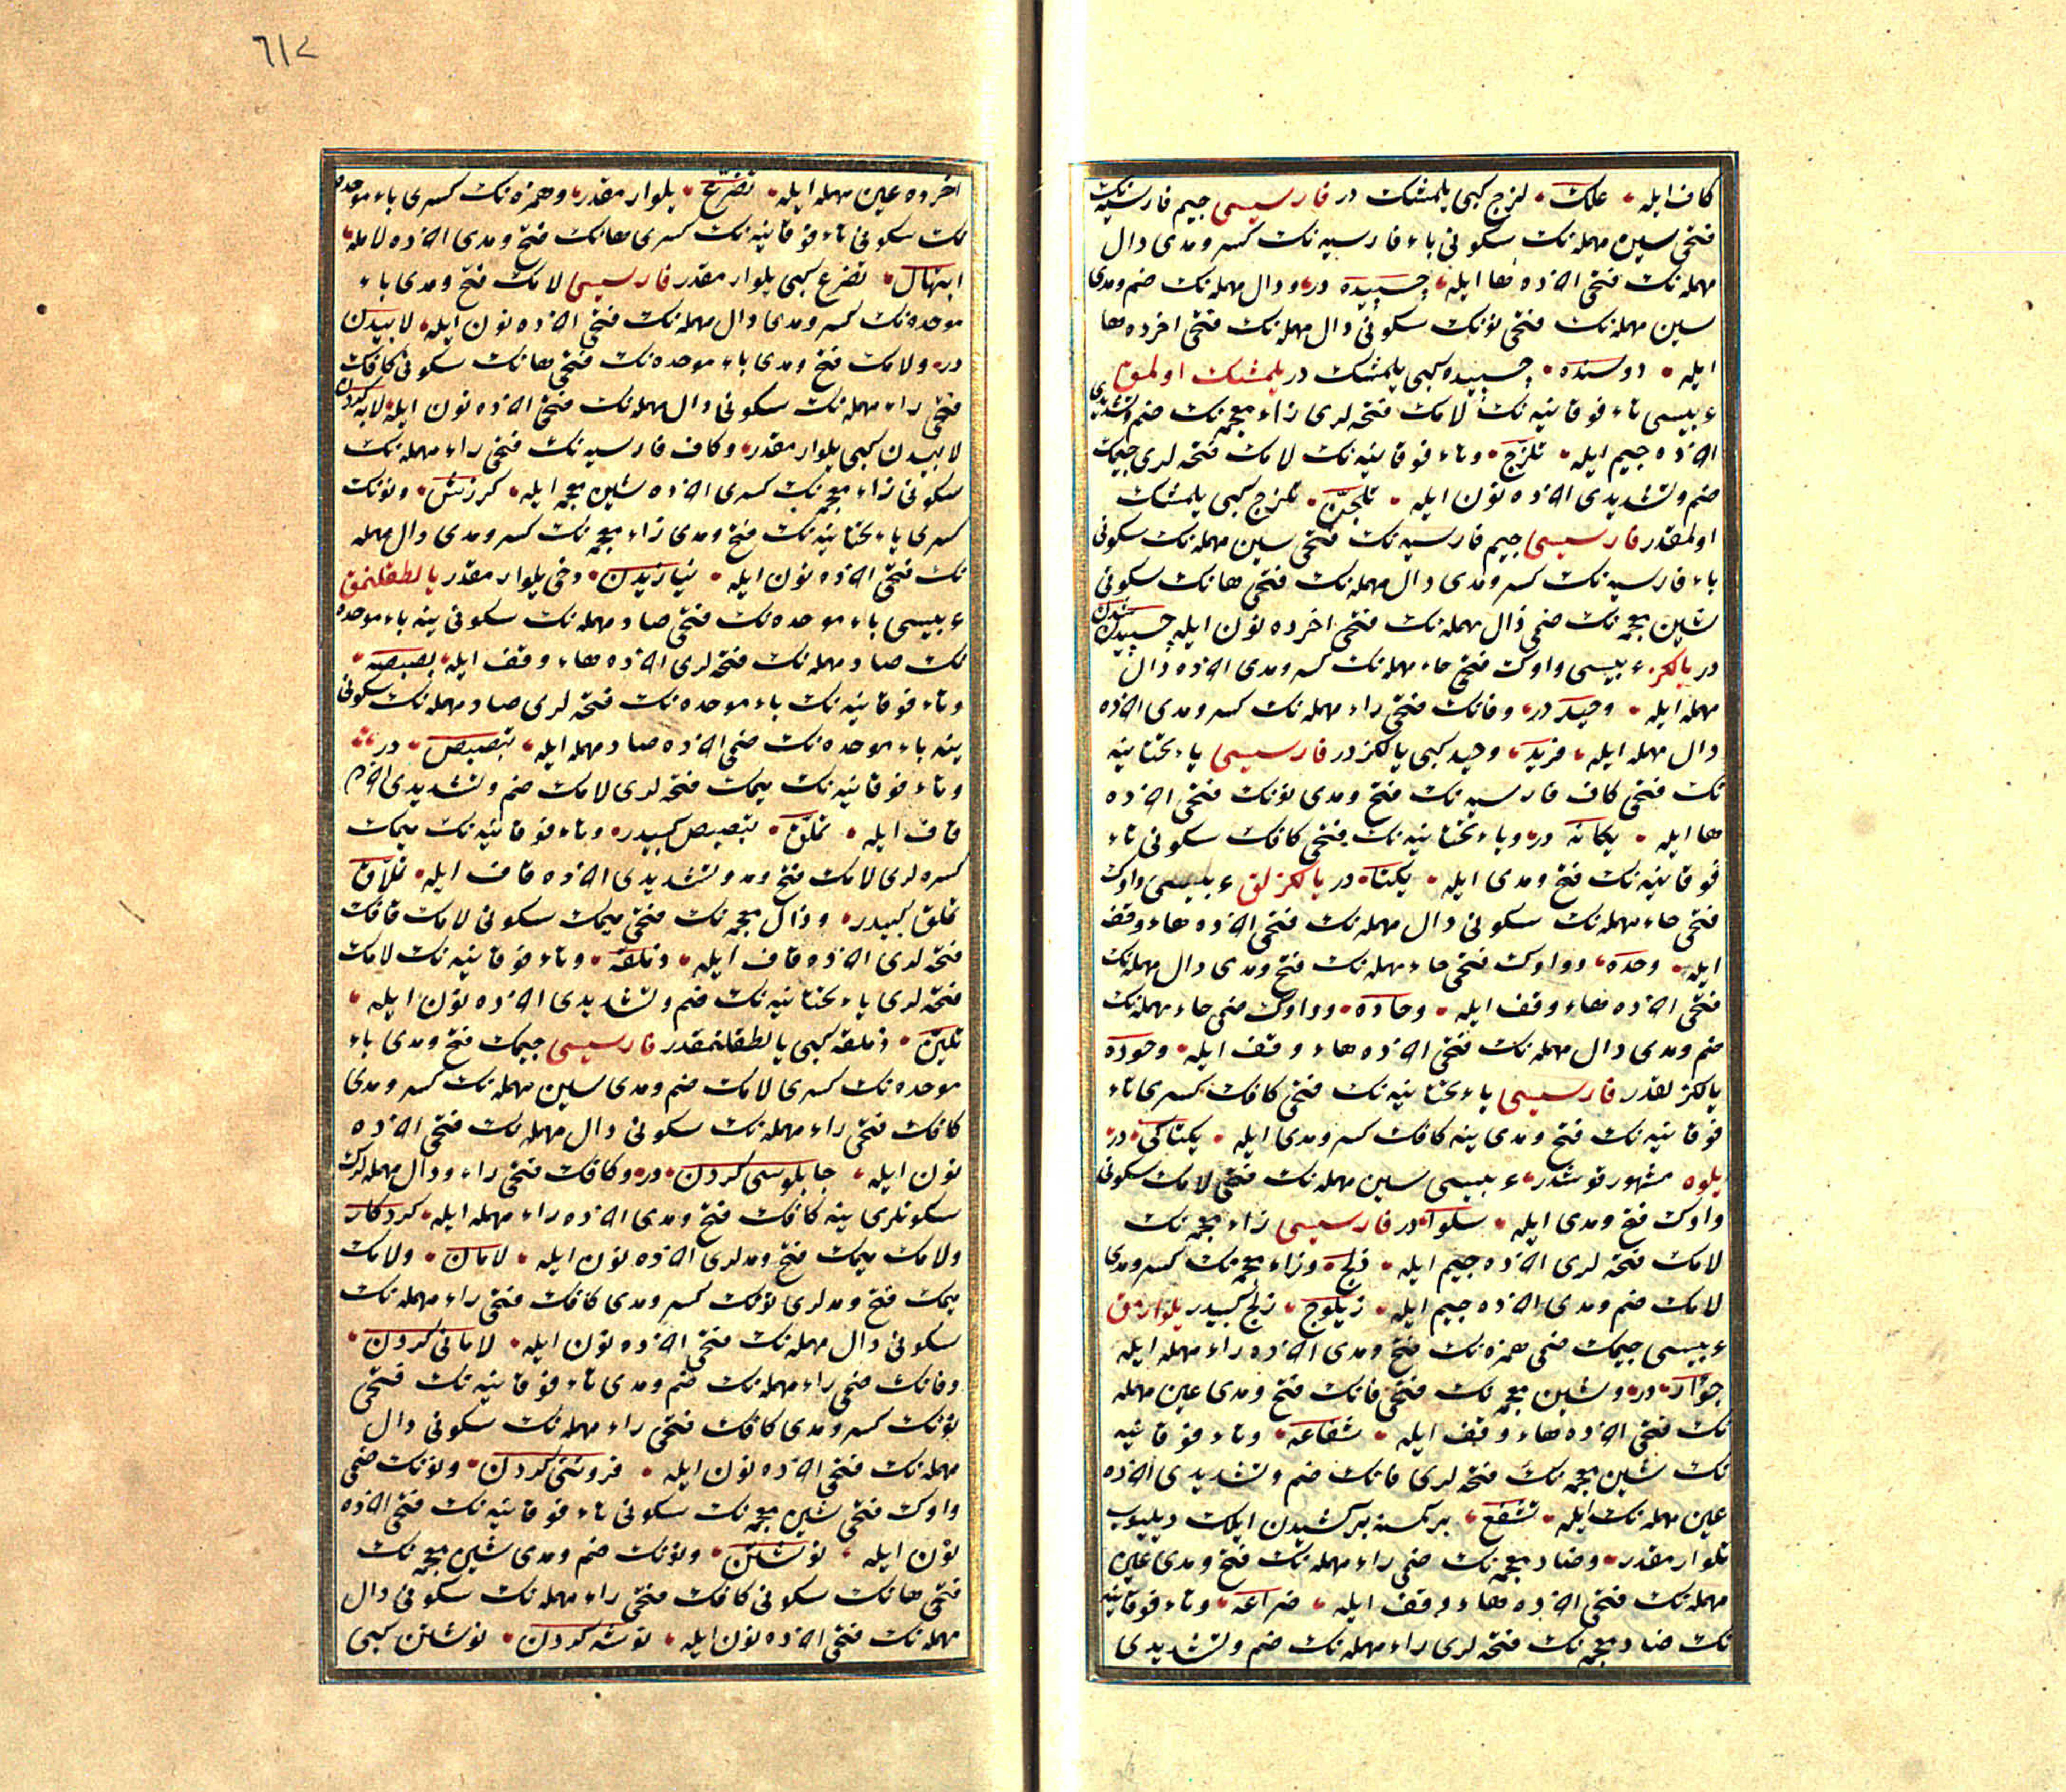 كاف ايله علك لزج كبى يلمشك در فارسيسى جيم فارسيه نك
فتحى سين مهمله نك سكونى باء فارسيه نك كسر و مدى دال
مهمله نك فتحى اخرده ها ايله چسپيده در ودال مهمله نك ضم ومدى
سين مهمله نك فتحى نونك سكونى دال مهمله نك فتحى اخرده ها
ايله دوسنده چسپيده كبى يلمشك در يلمشك اولمق
عربيسى تاء فوقانيه نك لامك فتحه لرى زاء معجمه نك ضم وتشديدى
اخرده جيم ايله تلزّج وتاء فوقانيه نك لامك فتحه لرى جيمك
ضم وتشديدى اخرده نون ايله تلجّن تلزج كبى يلمشك
اولمقدر فارسيسى جيم فارسيه نك فتحى سين مهمله نك سكونى
باء فارسيه نك كسر ومدى دال مهمله نك فتحى هانك سكونى
شين معجمه نك ضمى دال مهمله نك فتحى اخرده نون ايله چسپيده شدن
در يالكز عربيسى واوك فتحى حاء مهمله نك كسر ومدى اخرده دال
مهمله ايله وحيد در وفانك فتحى راء مهمله نك كسر ومدى اخرده
دال مهمله ايله فريد وحيد كبى يالكزدر فارسيسى ياء تحتانيه
نك فتحى كاف فارسيه نك فتح ومدى نونك فتحى اخرده
ها ايله يكانه در وياء تحتانيه نك فتحى كافك سكونى تاء
فوقانيه نك فتح ومدى ايله يكتا در يالكزلق عربيسى واوك
فتحى حاء مهمله نك سكونى دال مهمله نك فتحى اخرده هاء وقف
ايله وحده وواوك فتحى حاء مهمله نك فتح ومدى دال مهمله نك
فتحى اخرده هاء وقف ايله وحاده وواوك ضمى حاء مهمله نك
ضم ومدى دال مهمله نك فتحى اخرده هاء وقف ايله وحوده
يالكزلقدر فارسيسى ياء تحتانيه نك فتحى كافك كسرى تاء
فوقانيه نك فتح ومدى ينه كافك كسر ومدى ايله يكتاكى در
يلوه مشهور قوشدر عربيسى سين مهمله نك فتحى لامك سكونى
واوك فتح ومدى ايله سلوا در فارسيسى زاء معجمه نك
لامك فتحه لرى اخرده جيم ايله زلج وزاء معجمه نك كسر ومدى
لامك ضم ومدى اخرده جيم ايله زيلوج زلج كبيدر يلوارمق
عربيسى جيمك ضمى همزه نك فتح ومدى اخرده راء مهمله ايله
جؤار در وشين معجمه نك فتحى فانك فتح ومدى عين مهمله
نك فتحى اخرده هاء وقف ايله شفاعه وتاء فوقانيه
نك شين معجمه نك فتحه لرى فانك ضم وتشديدى اخرده
عين مهمله نك ايله تشفّع بركسنه ايلك ديليوب
يلوارمقدر وضاد معجمه نك ضمى راء مهمله نك فتح ومدى عين
مهمله نك فتحى اخرده هاء وقف ايله ضراعه وتاء فوقانيه
نك ضاد معجمه نك فتحه لرى راء مهمله نك ضم وتشديدى
٦١٢
اخرده عين مهمله ايله تضرّع يلوارمقدر وهمزه نك كسرى باء موحده
نك سكونى تاء فوقانيه نك كسرى هانك فتح ومدى اخرده لام ايله
ابتهال تضرع كبى يلوارمقدر فارسيسى لامك فتح ومدى باء
موحده نك كسر ومدى دال مهمله نك فتحى اخرده نون ايله لابيدن
در ولامك فتح ومدى باء موحده نك فتحى هانك سكونى كافك
فتحى راء مهمله نك سكونى دال مهمله نك فتحى اخرده نون ايله لابه كردن
لابيدن كبى يلوارمقدر وكاف فارسيه نك فتحى راء مهمله نك
سكونى زاء معجمه نك كسرى اخرده شين معجمه ايله كرزش ونونك
كسرى ياء تحتانيه نك فتح ومدى زاء معجمه نك كسر ومدى دال مهمله
نك فتحى اخرده نون ايله نيازيدن دخى يلوارمقدر يالطقلنمق
عربيسى باء موحده نك فتحى صاد مهمله نك سكونى ينه باء موحده
نك صاد مهمله نك فتحه لرى اخرده هاء وقف ايله بصبصه
وتاء فوقانيه نك باء موحده نك فتحه لرى صاد مهمله نك سكونى
ينه باء موحده نك ضمى اخرده صاد مهمله ايله تبصبص در
وتاء فوقانيه نك ميمك فتحه لرى لامك ضم وتشديدى اخرده
قاف ايله تملّق تبصبص كبيدر وتاء فوقانيه نك ميمك
كسره لرى لامك فتح ومد وتشديدى اخرده قاف ايله تملّاق
تملق كبيدر وذال معجمه نك فتحى ميمك سكونى لامك قافك
فتحه لرى اخرده قاف ايله ذملقه وتاء فوقانيه نك لامك
فتحه لرى ياء تحتانيه نك ضم وتشديدى اخرده نون ايله
تليّن ذملقه كبى يالطقلنمقدر فارسيسى جيمك فتح ومدى باء
موحده نك كسرى لامك ضم ومدى سين مهمله نك كسر ومدى
كافك فتحى راء مهمله نك سكونى دال مهمله نك فتحى اخرده
نون ايله جابلوسى كردن در وكافك فتحى راء ودال مهمله لرك
سكونلرى ينه كافك فتح ومدى اخرده راء مهمله ايله كردكار
ولامك ميمك فتح ومدلرى اخرده نون ايله لامان ولامك
ميمك فتح ومدلرى نونك كسر ومدى كافك فتحى راء مهمله نك
سكونى دال مهمله نك فتحى اخرده نون ايله لامانى كردن
وفانك ضمى راء مهمله نك ضم ومدى تاء فوقانيه نك فتحى
نونك كسر ومدى كافك فتحى راء مهمله نك سكونى دال
مهمله نك فتحى اخرده نون ايله فروتنى كردن ونونك ضمى
واوك فتحى شين معجمه نك سكونى تاء فوقانيه نك فتحى اخرده
نون ايله نوشتن ونونك ضم ومدى شين معجمه نك
فتحى هانك سكونى كافك فتحى راء مهمله نك سكونى دال
مهمله نك فتحى اخرده نون ايله نوشه كردن نوشتن كبى